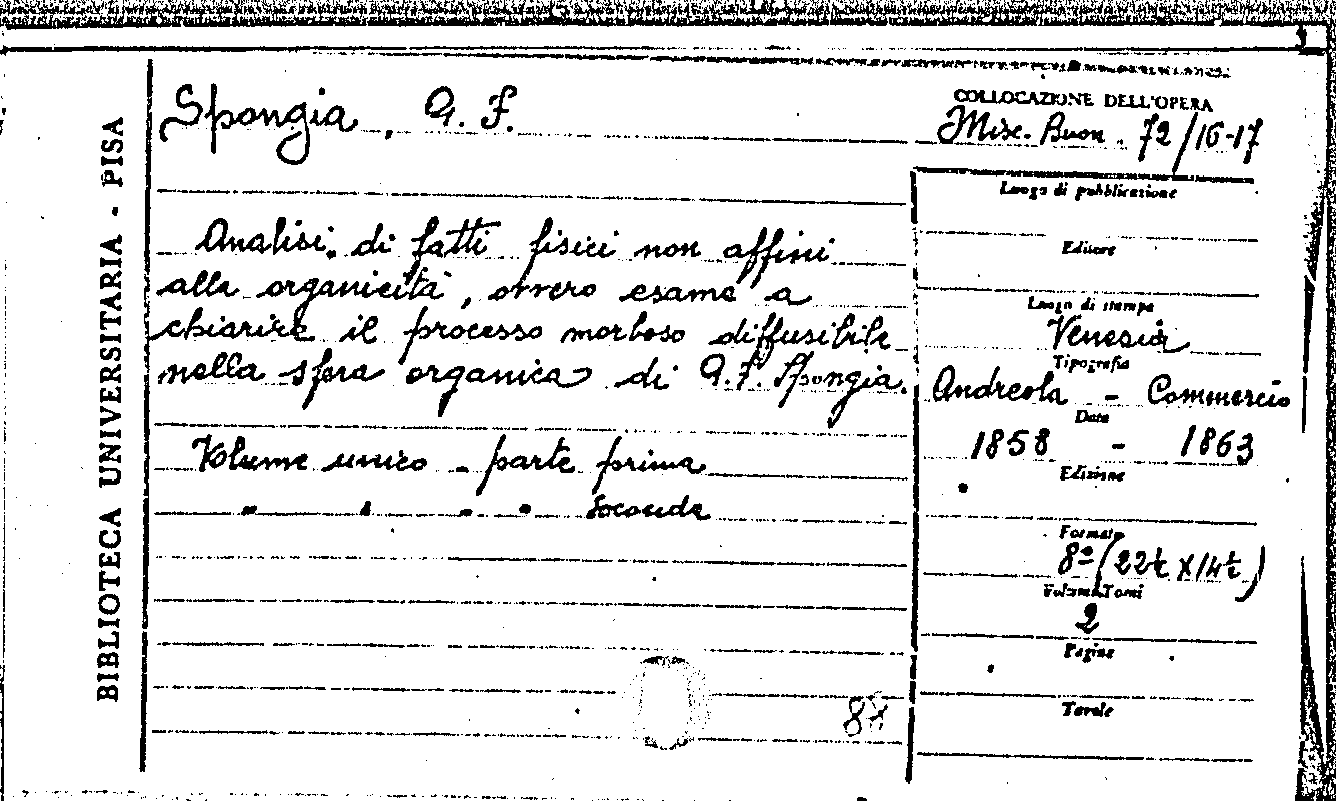 BIBLIOTECA UNIVERSITARIA - PISA
Spongia, G. F.
Analisi di fatti fisici non affini
alla organicità, ovvero esame a
chiarire il processo morboso diffusibile
nella sfera organica di G. F. Spongia.
Volume unico - parte prima
" " " " seconda
COLLOCAZIONE DELL'OPERA
Misc. Buon. 72/16-17
Luogo di pubblicazione
Editore
Luogo di stampa
Venezia
Tipografia
Andreola - Commercio
Data
1858 - 1863
Edizione
Formato
8º (22½ X 14½)
Volumi Tomi
2
Pagine
Tavole